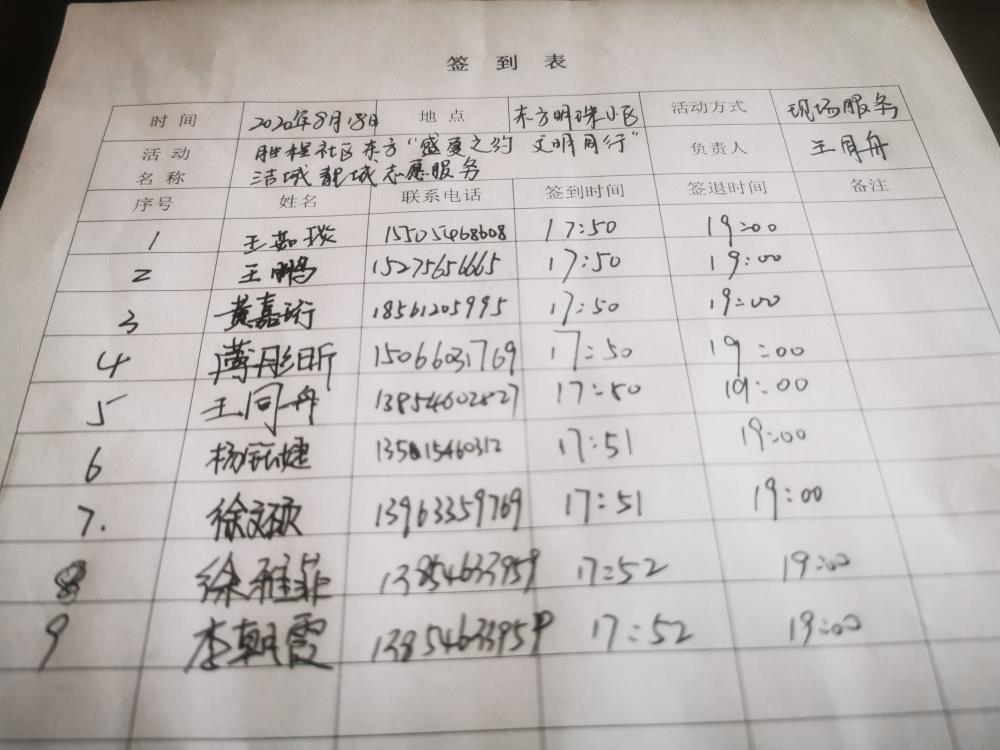 签 到 表
时 间 2020年8月18日 地 点 东方明珠小区 活动方式 现场服务
活 动 胜程社区东方“盛夏之约 文明同行” 负责人 王同舟
名 称 洁城靓城志愿服务
序号 姓名 联系电话 签到时间 签退时间 备注
1 王 15505468608 17:50 19:00
2 王鹏 15275656665 17:50 19:00
3 黄嘉珩 18561205995 17:50 19:00
4 薄彤昕 15066031769 17:50 19:00
5 王同舟 13854602827 17:50 19:00
6 杨 17:51 19:00
7. 徐文硕 13963359769 17:51 19:00
8 徐雅菲 13854633959 17:52 19:00
9 李朝霞 13854633959 17:52 19:00